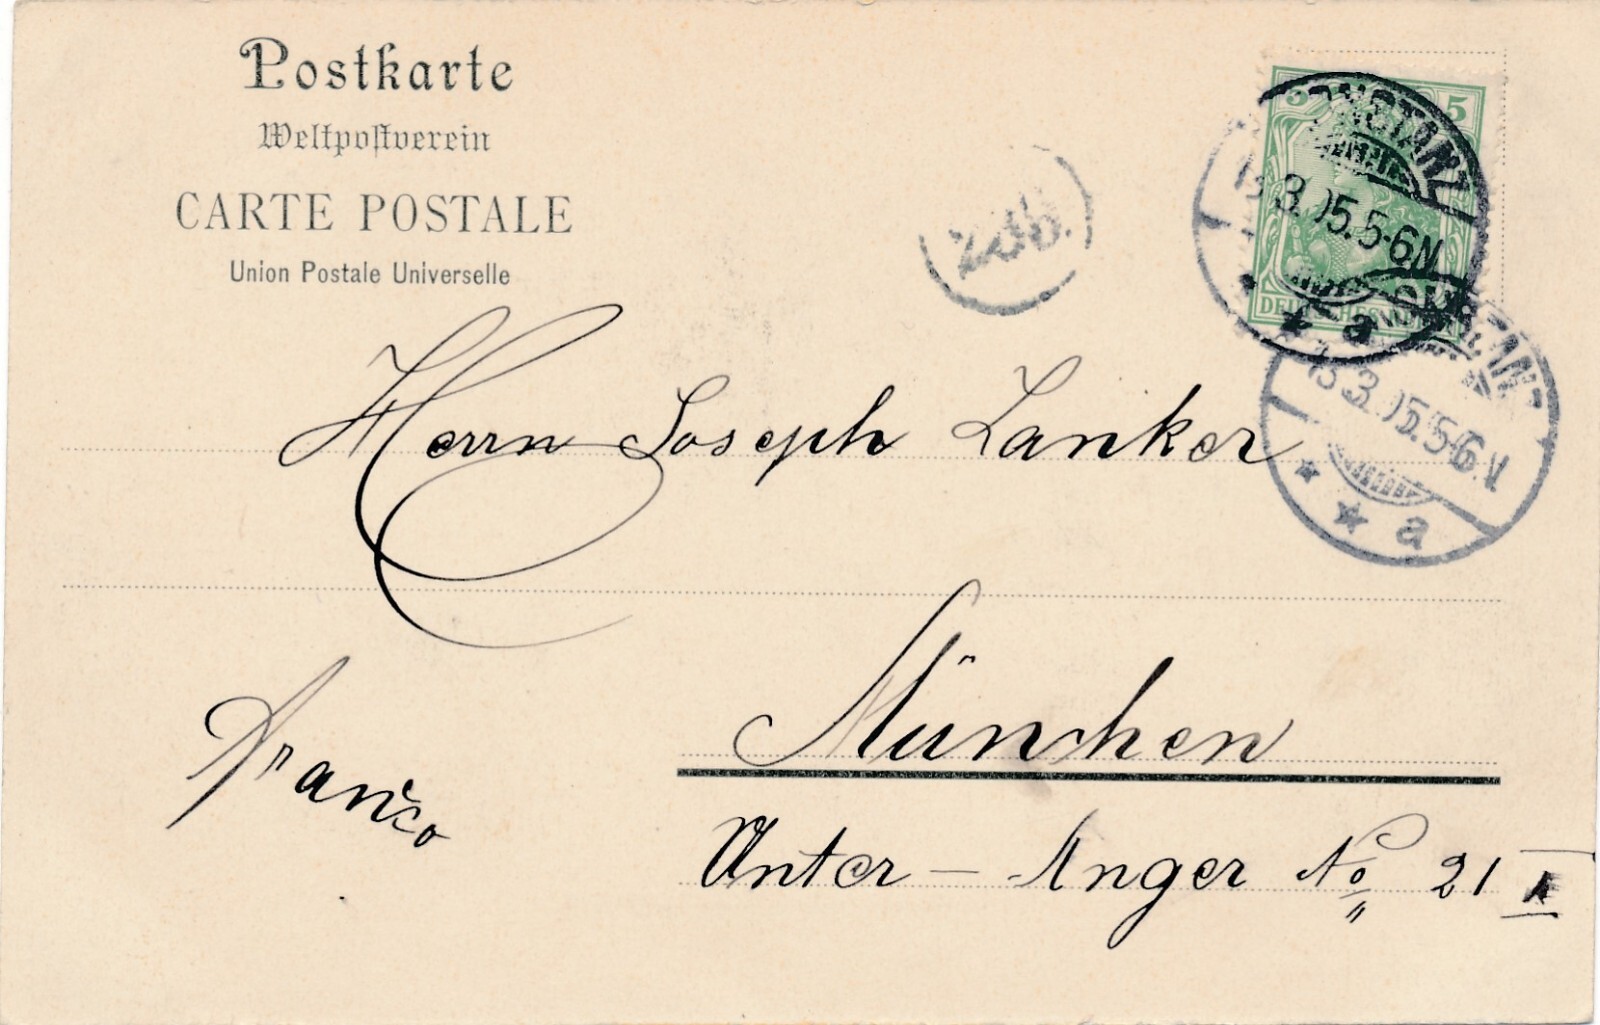 Postkarte
Weltpostverein
CARTE POSTALE
Union Postale Universelle
5 5
DEUTSCHES REICH
KONSTANZ
13.3.05.5-6N
* a
KONSTANZ
13.3.05.5-6N
* * a
Herrn Joseph Lanker
München
Franco
Unter-Anger No 21 I